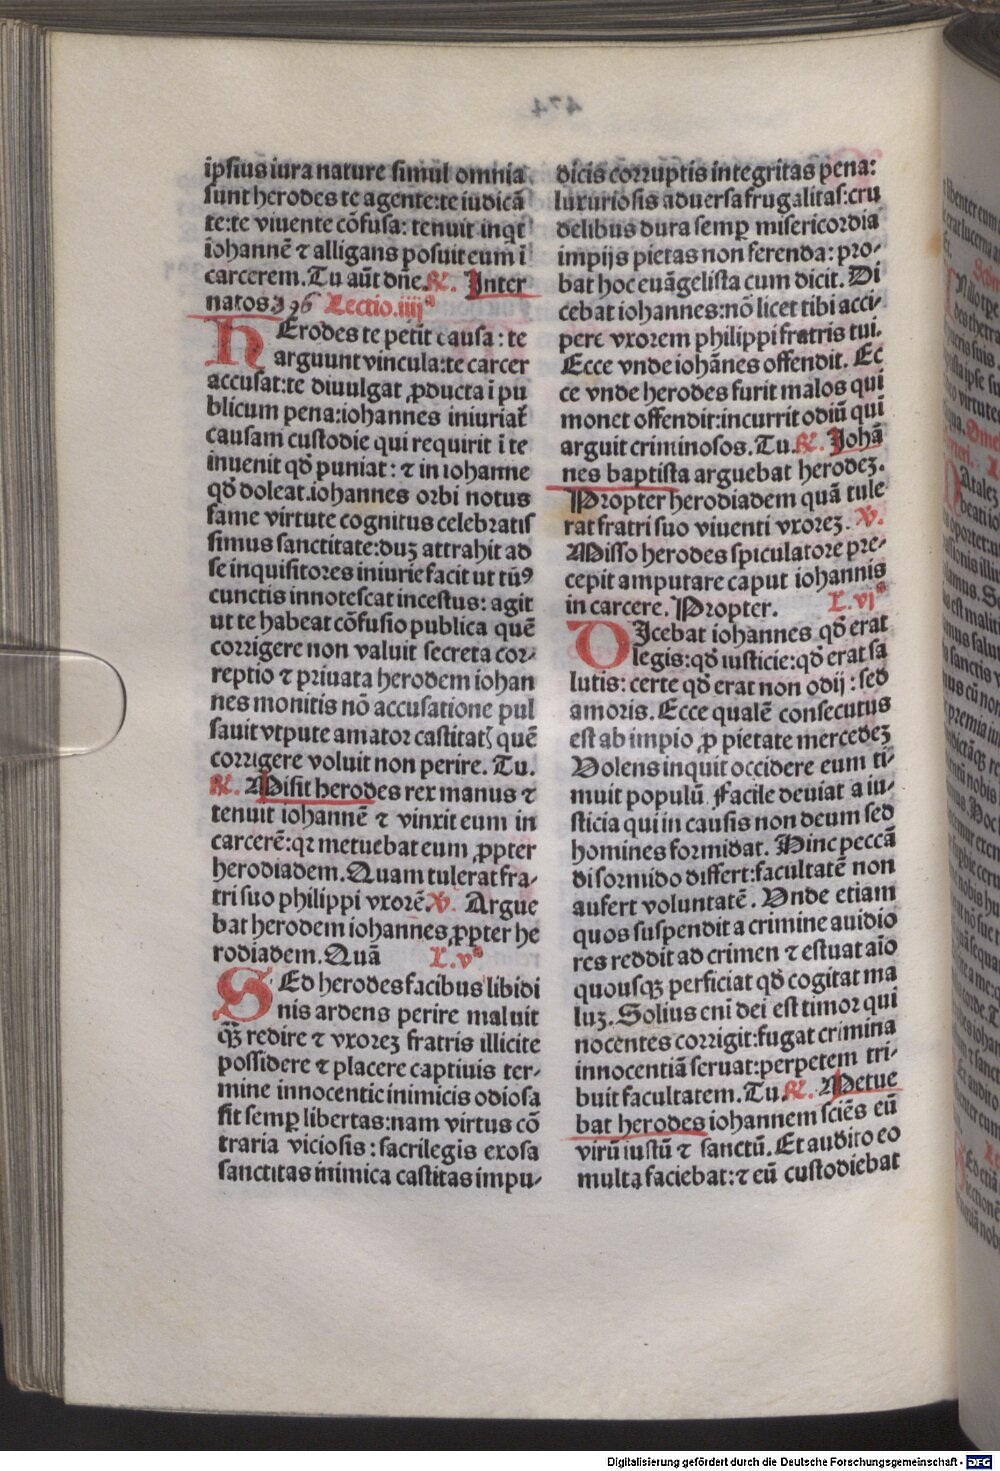 īpsius iura nature simul omnia
sunt herodes te agente:te iudicā
te:te viuente cōfusa: tenuit inqͥt
iohannē ⁊ alligans posuit eum ī
carcerem.Tu aūt dn̄e.℟. Inter
natos 396 Lectio.iiijᵃ
HErodes te petit causa : te
arguunt vincula:te carcer
accusat:te diuulgat ꝓducta ī pu
blicum pena:iohannes iniuriaꝉ
causam custodie qui requirit ī te
inuenit qđ puniat : ⁊ in iohanne
qđ doleat.iohannes orbi notus
fame virtute cognitus celebratis
simus sanctitate:duꝫ attrahit ad
se inquisitores iniurie facit ut tūꝰ
cunctis innotescat incestus: agit
ut te habeat cōfusio publica quē
corrigere non valuit secreta cor⸗
reptio ⁊ priuata herodem iohan
nes monitis nō accusatione pul
sauit vtpute amator castitatꝭ quē
corrigere voluit non perire. Tu.
℟. Misit herodes rex manus ⁊
tenuit iohannē ⁊ vinxit eum in
carcerē:qꝛ metuebat eum ꝓpter
herodiadem.Quam tulerat fra⸗
tri suo philippi vxorē.℣. Argue
bat herodem iohannes ꝓpter he
rodiadem.Quā L.vᵃ
SEd herodes facibus libidi
nis ardens perire maluit
qȝ̄ redire ⁊ vxoreꝫ fratris illicite
possidere ⁊ placere captiuis ter⸗
mine innocentie inimicis odiosa
fit semꝑ libertas:nam virtus cō
traria viciosis : sacrilegis exosa
sanctitas inimica castitas impu⸗
dicis corruptis integritas pena:
luxuriosis aduersa frugalitas:cru
delibus dura semꝑ misericordia
impijs pietas non ferenda: pro⸗
bat hoc euāgelista cum dicit. Di
cebat iohannes:nō licet tibi acci⸗
pere vxorem philippi fratris tui.
Ecce vnde iohānes offendit. Ec
ce vnde herodes furit malos qui
monet offendit:incurrit odiū qui
arguit criminosos.Tu.℟. Johā
nes baptista arguebat herodeꝫ.
Propter herodiadem quā tule
rat fratri suo viuenti vxoreꝫ. ℣.
Misso herodes spiculatore pre⸗
cepit amputare caput iohannis
in carcere. Propter. L.viᵃ
DIcebat iohannes qđ erat
legis:qđ iusticie:qđ erat sa
lutis: certe qđ erat non odij : sed
amoris. Ecce qualē consecutus
est ab impio ꝓ pietate mercedeꝫ
Uolens inquit occidere eum ti⸗
muit populū Facile deuiat a iu⸗
sticia qui in causis non deum sed
homines formidat. Hinc peccā
di formido differt:facultatē non
aufert voluntatē. Unde etiam
quos suspendit a crimine auidio
res reddit ad crimen ⁊ estuat aīo
quousqȝ perficiat qđ cogitat ma
luꝫ. Solius eni dei est timor qui
nocentes corrigit:fugat crimina
innocentiā seruat:perpetem tri⸗
buit facultatem.Tu.℟. Metue
bat herodes iohannem sciēs eū
virū iustū ⁊ sanctū. Et audito eo
multa faciebat:⁊ eū custodiebat
Digitalisierung gefördert durch die Deutsche Forschungsgemeinschaft - DFG